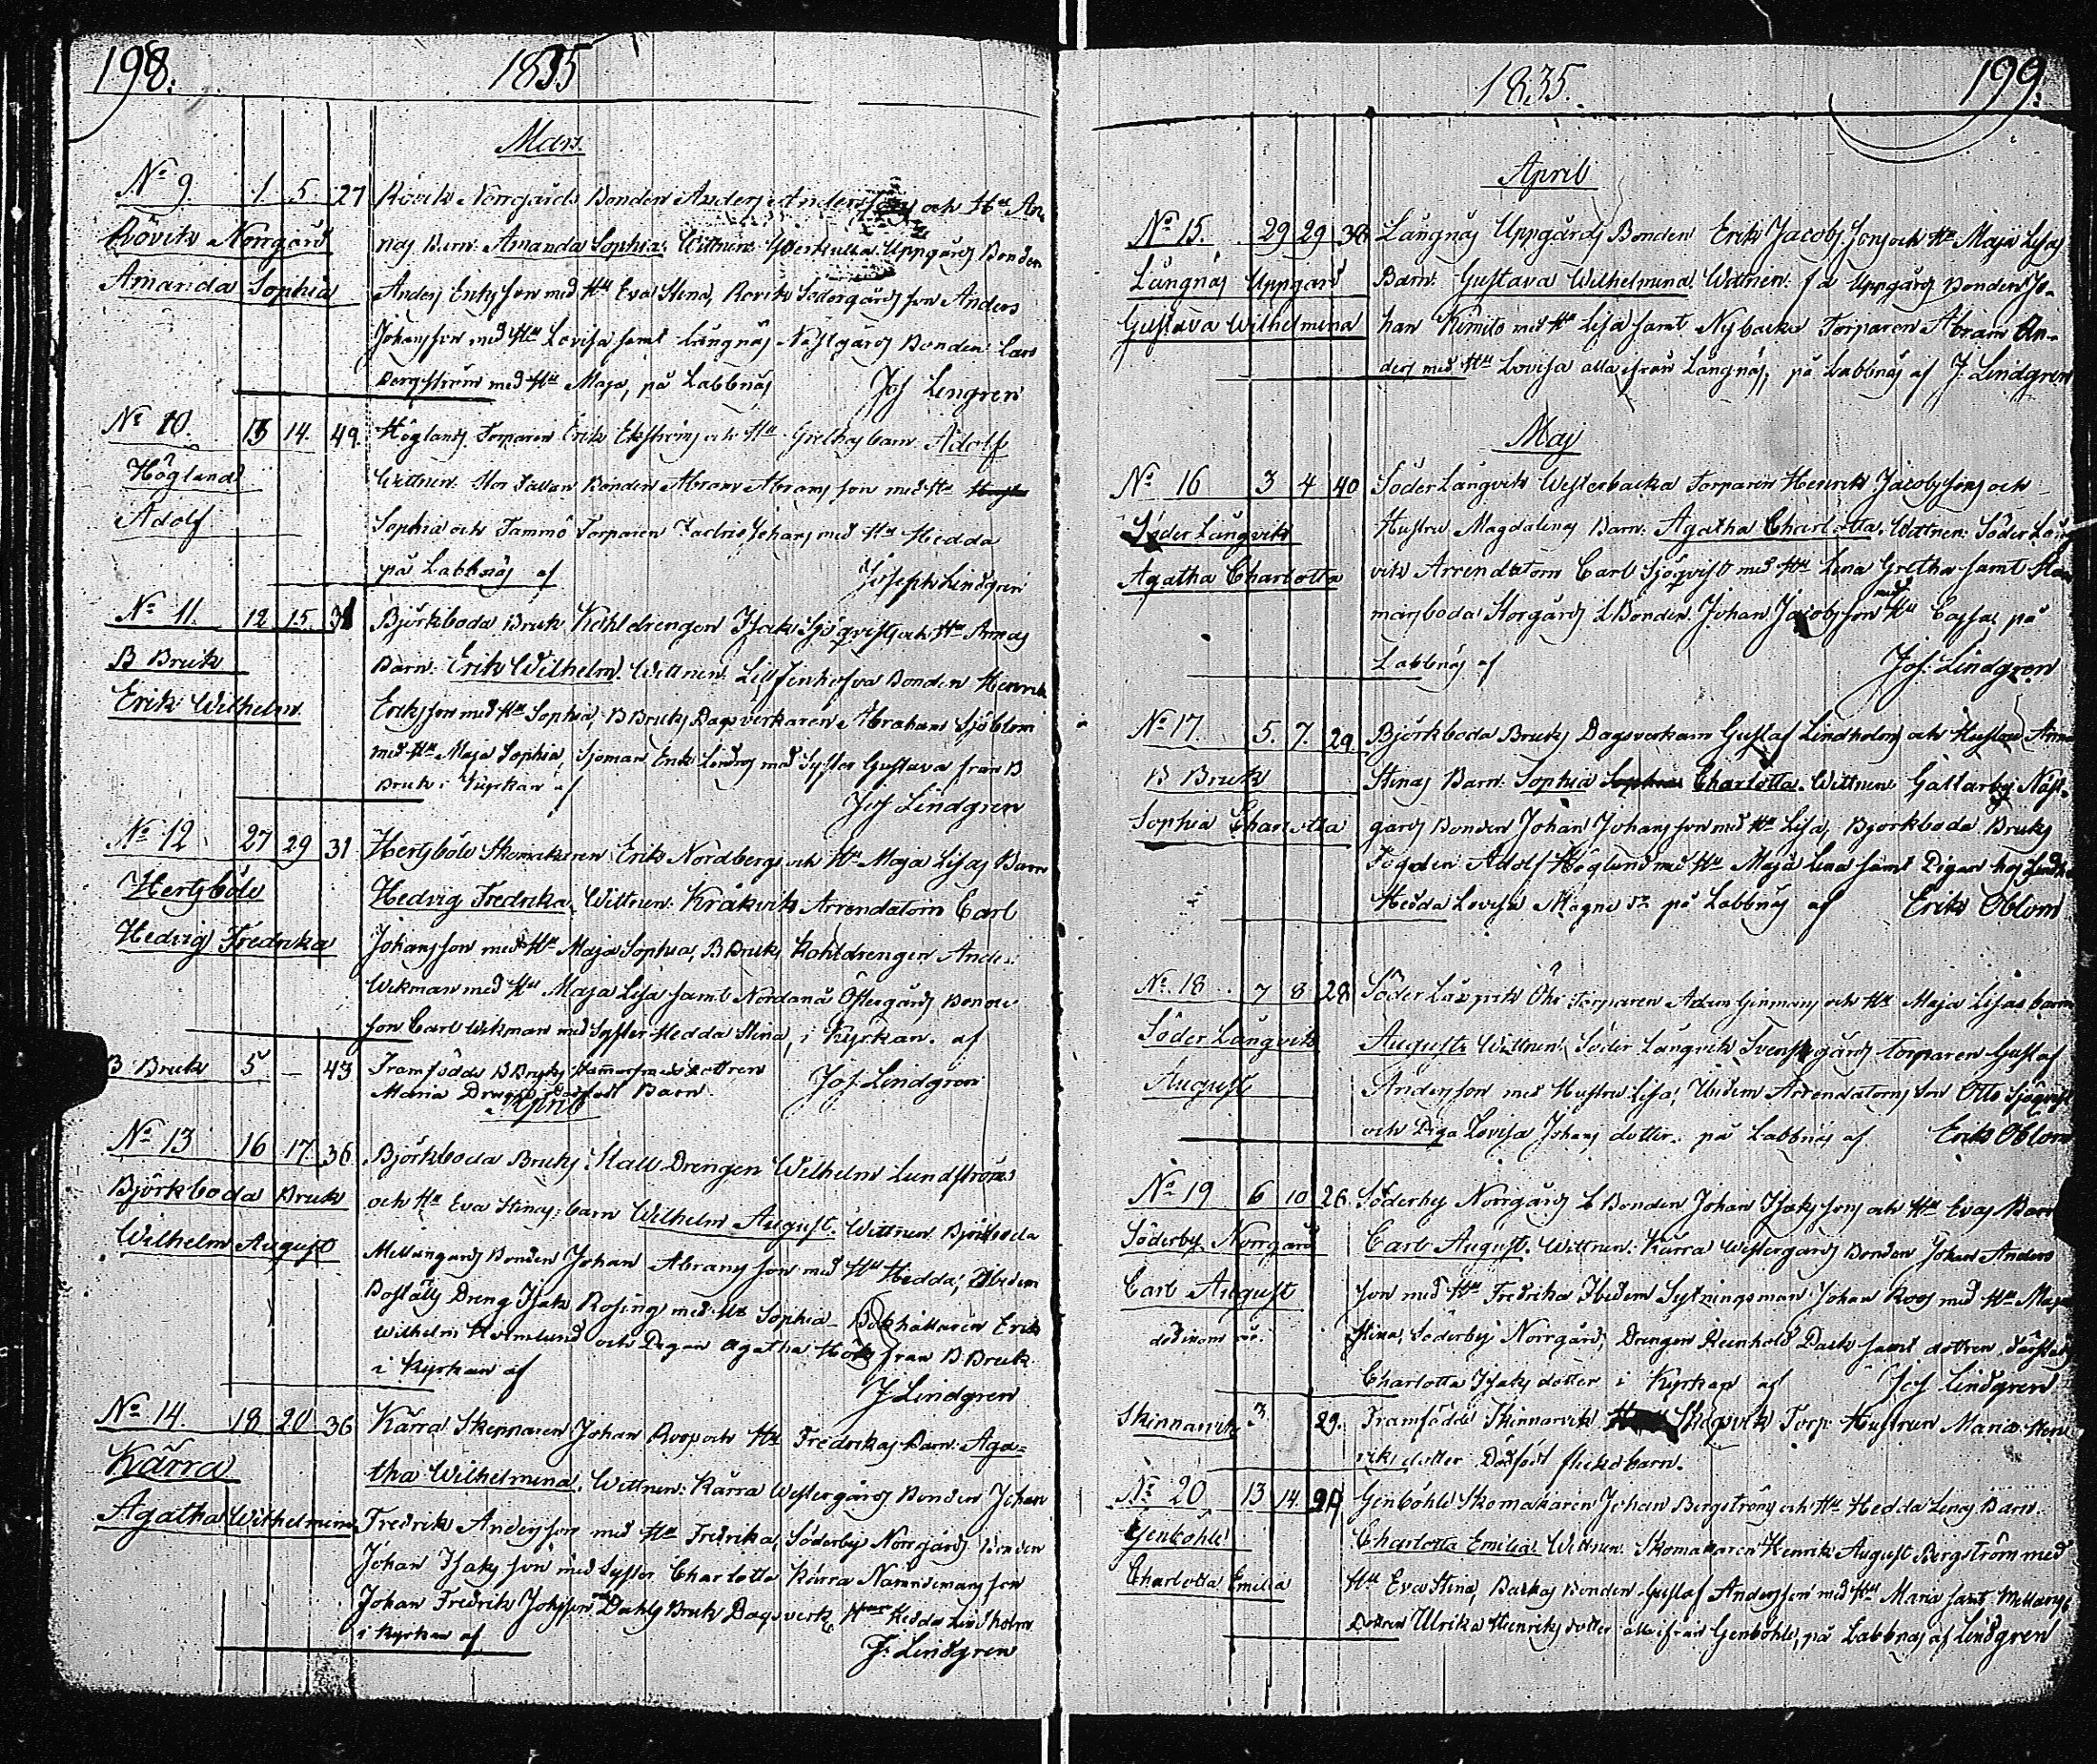 198.
1835
Mars.
No 9. 1 5. 27 Rövik Norrgårds Bonden Anders Andersson och Hu An-
Rövik Norrgård nas Barn: Amanda Sophia. Wittnen: Uppgårds Bonden
Amanda Sophia Anders Ericsson med Hu Eva Stina, Rövik Södergårds son Anders
Johansson med Hu Lovisa samt Långnäs Nästgårds Bonden Lars
Bergström med Hu Maja, på Labbnäs Jos Lengren
No 10. 13 14. 49. Höglands Torparen Erik Ekströms och Hu Grethas barn Adolf
Högland Wittnen. Stor Tallan Bonden Abram Abramsson med Hu
Adolf Sophia och Tammo Torparen Johans med Hu Hedda
på Labbnäs af Joseph Lindgren
No 11. 12 15. 31 Björkboda Bruk Kohldrengen Isak Sjöqvists och Hu Annas
B Bruk Barn: Erik Wilhelm. Wittnen. Lill Finhofva Bonden Henrik
Erik Wilhelm Eriksson med Hu Sophia, B Bruks Dagsverkaren Abraham Sjöblom
med Hu Maja Sophia, Sjöman Erik Lindros med Syster Gustava från B
Bruk i Kyrkan af
Jos Lindgren
No 12 27 29 31 Hertsböle Skomakaren Erik Nordbergs och Hu Maja Lisas Barn
Hertsböle Hedvig Fredrika. Wittnen: Kråkvik Arrendatorn Carl
Hedvig Fredrika Johansson med Hu Maja Sophia, B Bruks Kohldrengen Anders
Wikman med Hu Maja Lisa samt Nordanå Östergårds Bonde
son Carl Wikman med Syster Hedda Stina, i Kyrkan. af
B Bruk 5 – 43 Framfödde B Bruks dottren Jos. Lindgren
Maria Dödfödt Barn.
April
No 13 16 17. 36 Björkboda Bruks Stall Drengen Wilhelm Lundströms
Björkboda Bruk och Hu Eva Stinas barn Wilhelm August. Wittnen. Björkboda
Wilhelm August Mellangårds Bonden Johan Abramsson med Hu Hedda, Ibidem
Boställs Dreng Isak Rosing med Hu Sophia Bokhållaren Erik
Wilhelm Holmlund och Pigan Agatha Höök från B Bruk
i Kyrkan af
J Lindgren
No 14. 18 20 36 Kärra Skepparen Johan Roos och Hu Fredrikas Barn: Aga=
Kärra tha Wilhelmina. Wittnen: Kärra Westergårds Bonden Johan
Agatha Wilhelmina Fredrik Andersson med Hu Fredrika, Söderby Norrgårds Bonden
Johan Isaksson med Syster Charlotta Kärra Nämndemans son
Johan Fredrik Johsson Dahls Bruk Dagsverk. Hedda Lindholm
i Kyrkan af
J. Lindgren
1835.
199.
April
No 15. 29 29 38 Långnäs Uppgårds Bonden Erik Jacobssons och Hu Maja Lisas
Långnäs Uppgård Barn: Gustava Wilhelmina. Wittnen: Uppgårds Bonden Jo-
Gustava Wilhelmina han Kimito med Hu Lisa samt Nybacka Torparen Abram An-
ders med Hu Lovisa alla ifrån Långnäs, på Labbnäs af J. Lindgren
Maj
No 16 3 4 40 Söder Långvik Westerbacka Torparen Henrik Jacobssons och
Söder Långvik Hustru Magdalenas Barn: Agatha Charlotta. Wittnen: Söder Lång
Agatha Charlotta vik Arrendatorn Carl Sjöqvist med Hu Lena Gretha samt
marsboda Storgårds L Bonden Johan Jacobsson med Hu Cajsa på
Labbnäs af Jos. Lindgren
No 17. 5. 7. 29. Björkboda Bruks Dagsverkarn Gustaf Lindholms och Hustru Anna
B Bruk Stinas Barn: Sophia Charlotta. Wittnen Galtarby Näst-
Sophia Charlotta gårds Bonden Johan Johansson med Hu Lisa, Bjorkboda Bruks
Fogden Adolf Höglund med Hu Maja Lena samt Pigan hos
Hedda Lovisa på Labbnäs af Erik Oblom
No 18 7 8 28 Söder Långvik Torparen Adam och Hu Maja Lisas barn
Söder Långvik August. Wittnen: Söder Långvik Svensgårds torparen Gustaf
August Andersson med Hustru Lisa, Ibidem Arrendatorns son Otto Sjöqvist
och Piga Lovisa Johans dotter. på Labbnäs af Erik Oblom
No 19 6 10 26 Söderby Norrgårds L Bonden Johan Isakssons och Hu Evas Barn
Söderby Norrgård Carl August. Wittnen: Kärra Westergårds Bonden Johan Anders
Carl August son med Hu Fredrika Ibidem Sytningsman Johan Roos med Hu Maja
Stina, Söderby Norrgård, Drengen Reinhold samt dottren
Charlotta Isaks dotter i Kyrkan af Jos Lindgren
Skinnarvik 3 29. Framfödde Skinnarvik Skogsvik Torp. Hustrun Maria Hen
riks dotter Dödfödt flickobarn.
No 20 13 14. Genböhle Skomakaren Johan Bergströms och Hu Hedda Lenas Barn.
Genböhle Charlotta Emilia. Wittnen. Skomakaren Henrik August Bergström med
Charlotta Emilia Hu Eva Stina, Backas Bonden Gustaf Andersson med Hu Maria samt
Dottren Ulrika Henriks dotter alla ifrån Genböhle, på Labbnäs af Lindgren